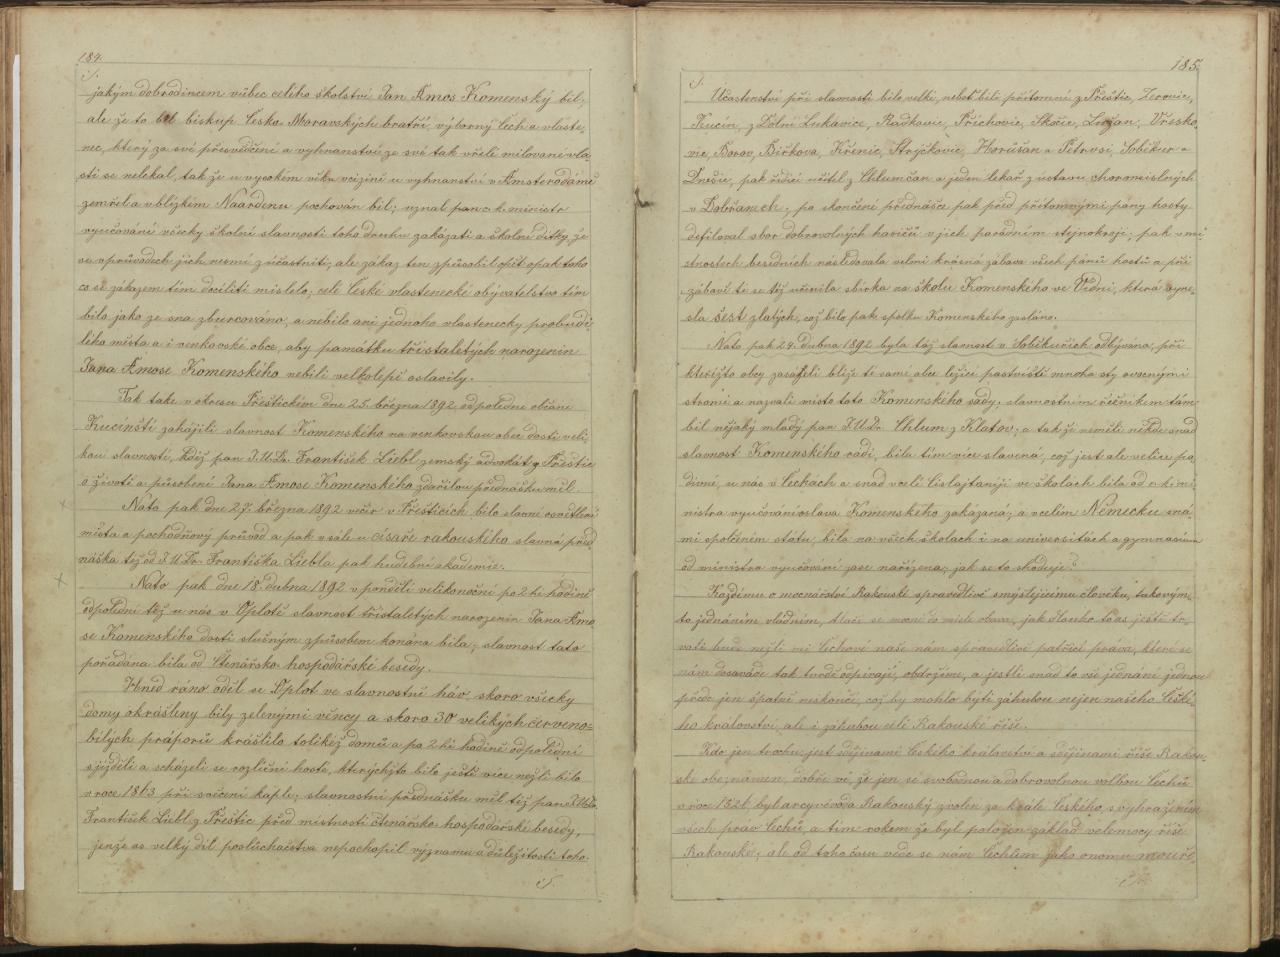 184.
jakým dobrodincem vůbec celého školství Jan Amos Komenský bil,
ale že to bil biskup Česko-Moravských bratří, výborný Čech a vlaste-
nec, který za své přesvědčení a vyhnanství ze své tak vřele milované vla-
sti se nelekal, tak že u vysokém věku v cizině u vyhnanství v Amsterodámě
zemřel a v blízkém Naardenu pochován bil, uznal pan c. k. ministr
vyučování všecky školní slavnosti toho druhu zakázati a školní dítky, že
se v průvodech jich nesmí zúčastniti; ale zákaz ten způsobil opět opak toho
co se zákazem tím docíliti mislelo; celé České vlastenecké obývatelstvo tím
bilo jako ze sna zburcováno, a nebilo ani jednoho vlastenecky probudi-
lého města a i venkovské obce, aby památku třistaletých narozenin
Jana Amose Komenského nebili velkolepě oslavily.
Tak take v okresu Přeštickém dne 25. března 1892 odpoledne občané
Kucínští zahájili slavnost Komenského na venkovskou obec dosti veli-
kou slavností, kdež pan J.U.Dr. František Liebl zemský advokát z Přeštic
o životě a působení Jana Amose Komenského zdařilou přednášku měl.
Nato pak dne 27. března 1892 večír v Přešticích bilo slavné osvětlení
města a pochodňový průvod a pak v sále u císaře rakouského slavná před-
náška též od J.U.Dr. Františka Liebla pak hudební akademie.
Nato pak dne 18. dubna 1892 v ponděli velikonoční po 2hé hodině
odpolední též u nás v Oplotě slavnost třistaletých narozenin Jana Amo-
se Komenského dosti slušným způsobem konána bila; slavnost tato
pořádána bila od Čtenářsko hospodářské besedy.
Hned ráno oděl se Oplot ve slavnostné háv skoro všecky
domy okrášleny bily zelenými věncy a skoro 30 velikých červeno-
bílých práporů krášlilo tolikéž domů a po 2hé hodině odpolední
sjížděli a scházeli se rozliční hosté, kterýchžto bilo ještě více nežli bilo
v roce 1863 při svěcení kaple; slavnostní přednášku měl též pan J.U.Dr.
František Liebl z Přeštic před místností čtenářsko hospodářské besedy,
jenže as velký díl poslucháčstva nepochopil významu a důležitosti toho.
185.
Účastenství při slavnosti bilo velké, neboť bili přítomni z Přeštic, Zerovic,
Kucín, z Dolní Lukavice, Radkovic, Příchovic, Skočic, Lužan, Vřesko-
vic, Borov, Biřkova, Křenic, Strýčkovic, Horušan a Petrovsi, Soběkur a
Dnešic, pak řídící učitel z Chlumčan a jeden lekař z ústavu choromislných
v Dobřanech; po skončení přednášce pak před přítomnými pány hosty
defiloval sbor dobrovolných hasičů v jich parádním stejnokroji; pak v mí-
stnostech besedních následovala velmi krásná zábava všech pánů hostů a při
zábavě té se též učinila sbírka na školu Komenského ve Vídni, která vyne-
sla šest zlatých, což bilo pak spolku Komenského zasláno.
Nato pak 24. dubna 1892 byla též slavnost v Soběkuřích odbývána, při
kteréžto obcy zasázeli blíže té samé obce ležící pastviště mnoha sty ovocnými
stromi a nazvali místo toto Komenského sady; slavnostním řečníkem tam
bil nějaký mladý pan J.U.Dr. Chlum z Klatov; a tak že neměli někde snad
slavnosti Komenského rádi, bila tím více slavena, což jest ale velice po-
divní, u nás v Čechách a snad v celé Cislajtaniji ve školách bila od c. k. mi-
nistra vyučování oslava Komenského zakázaná; a v celém Německu sná-
mi spolčeném státu, bila na všech školách i na universitách a gymnasium
od ministra vyučování zase nařízena; jak se to shoduje?
Každému o mocnářství Rakouské spravedlivě smýšlejícímu člověku, takovým-
to jednáním vládním, tlačí se mocně do mislé obava, jak dlouho to as ještě tr-
vatí bude nežli mi Čechové naše nám spravedlivě patřící práva, které se
nám dosaváde tak tvrdě odpírají, obdržíme, a jestli snad to vše jednání jednou
přede jen špatně neskončí, což by mohlo býti záhubou nejen našeho České-
ho království, ale i záhubou celé Rakouské říše.
Kdo jen trochu jest s dějinami Českého království a s dějinami říše Rakou-
ské obeznámen, dobře ví, že jen se svobodnou a dobrovolnou volbou Čechů
v roce 1526 byl arcyvévoda Rakouský zvolen za krále Českého, s vyhražením
všech práv Čechů, a tím rokem že byl položen základ velemocy říše
Rakouské; ale od toho času vede se nám Čechům jako onomu mouře-